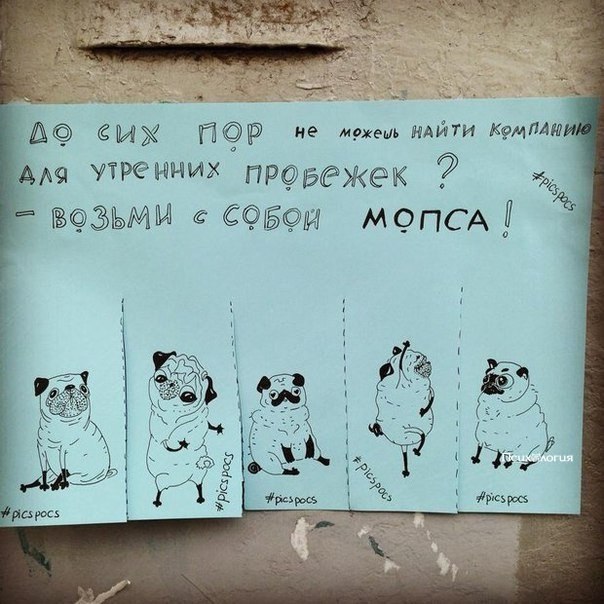 ДО СИХ ПОР НЕ МОЖЕШЬ НАЙТИ КОМПАНИЮ
ДЛЯ УТРЕННИХ ПРОБЕЖЕК ?
#picspocs
- ВОЗЬМИ С СОБОЙ МОПСА !
#picspocs
#picspocs
#picspocs
#picspocs
#picspocs
Психология